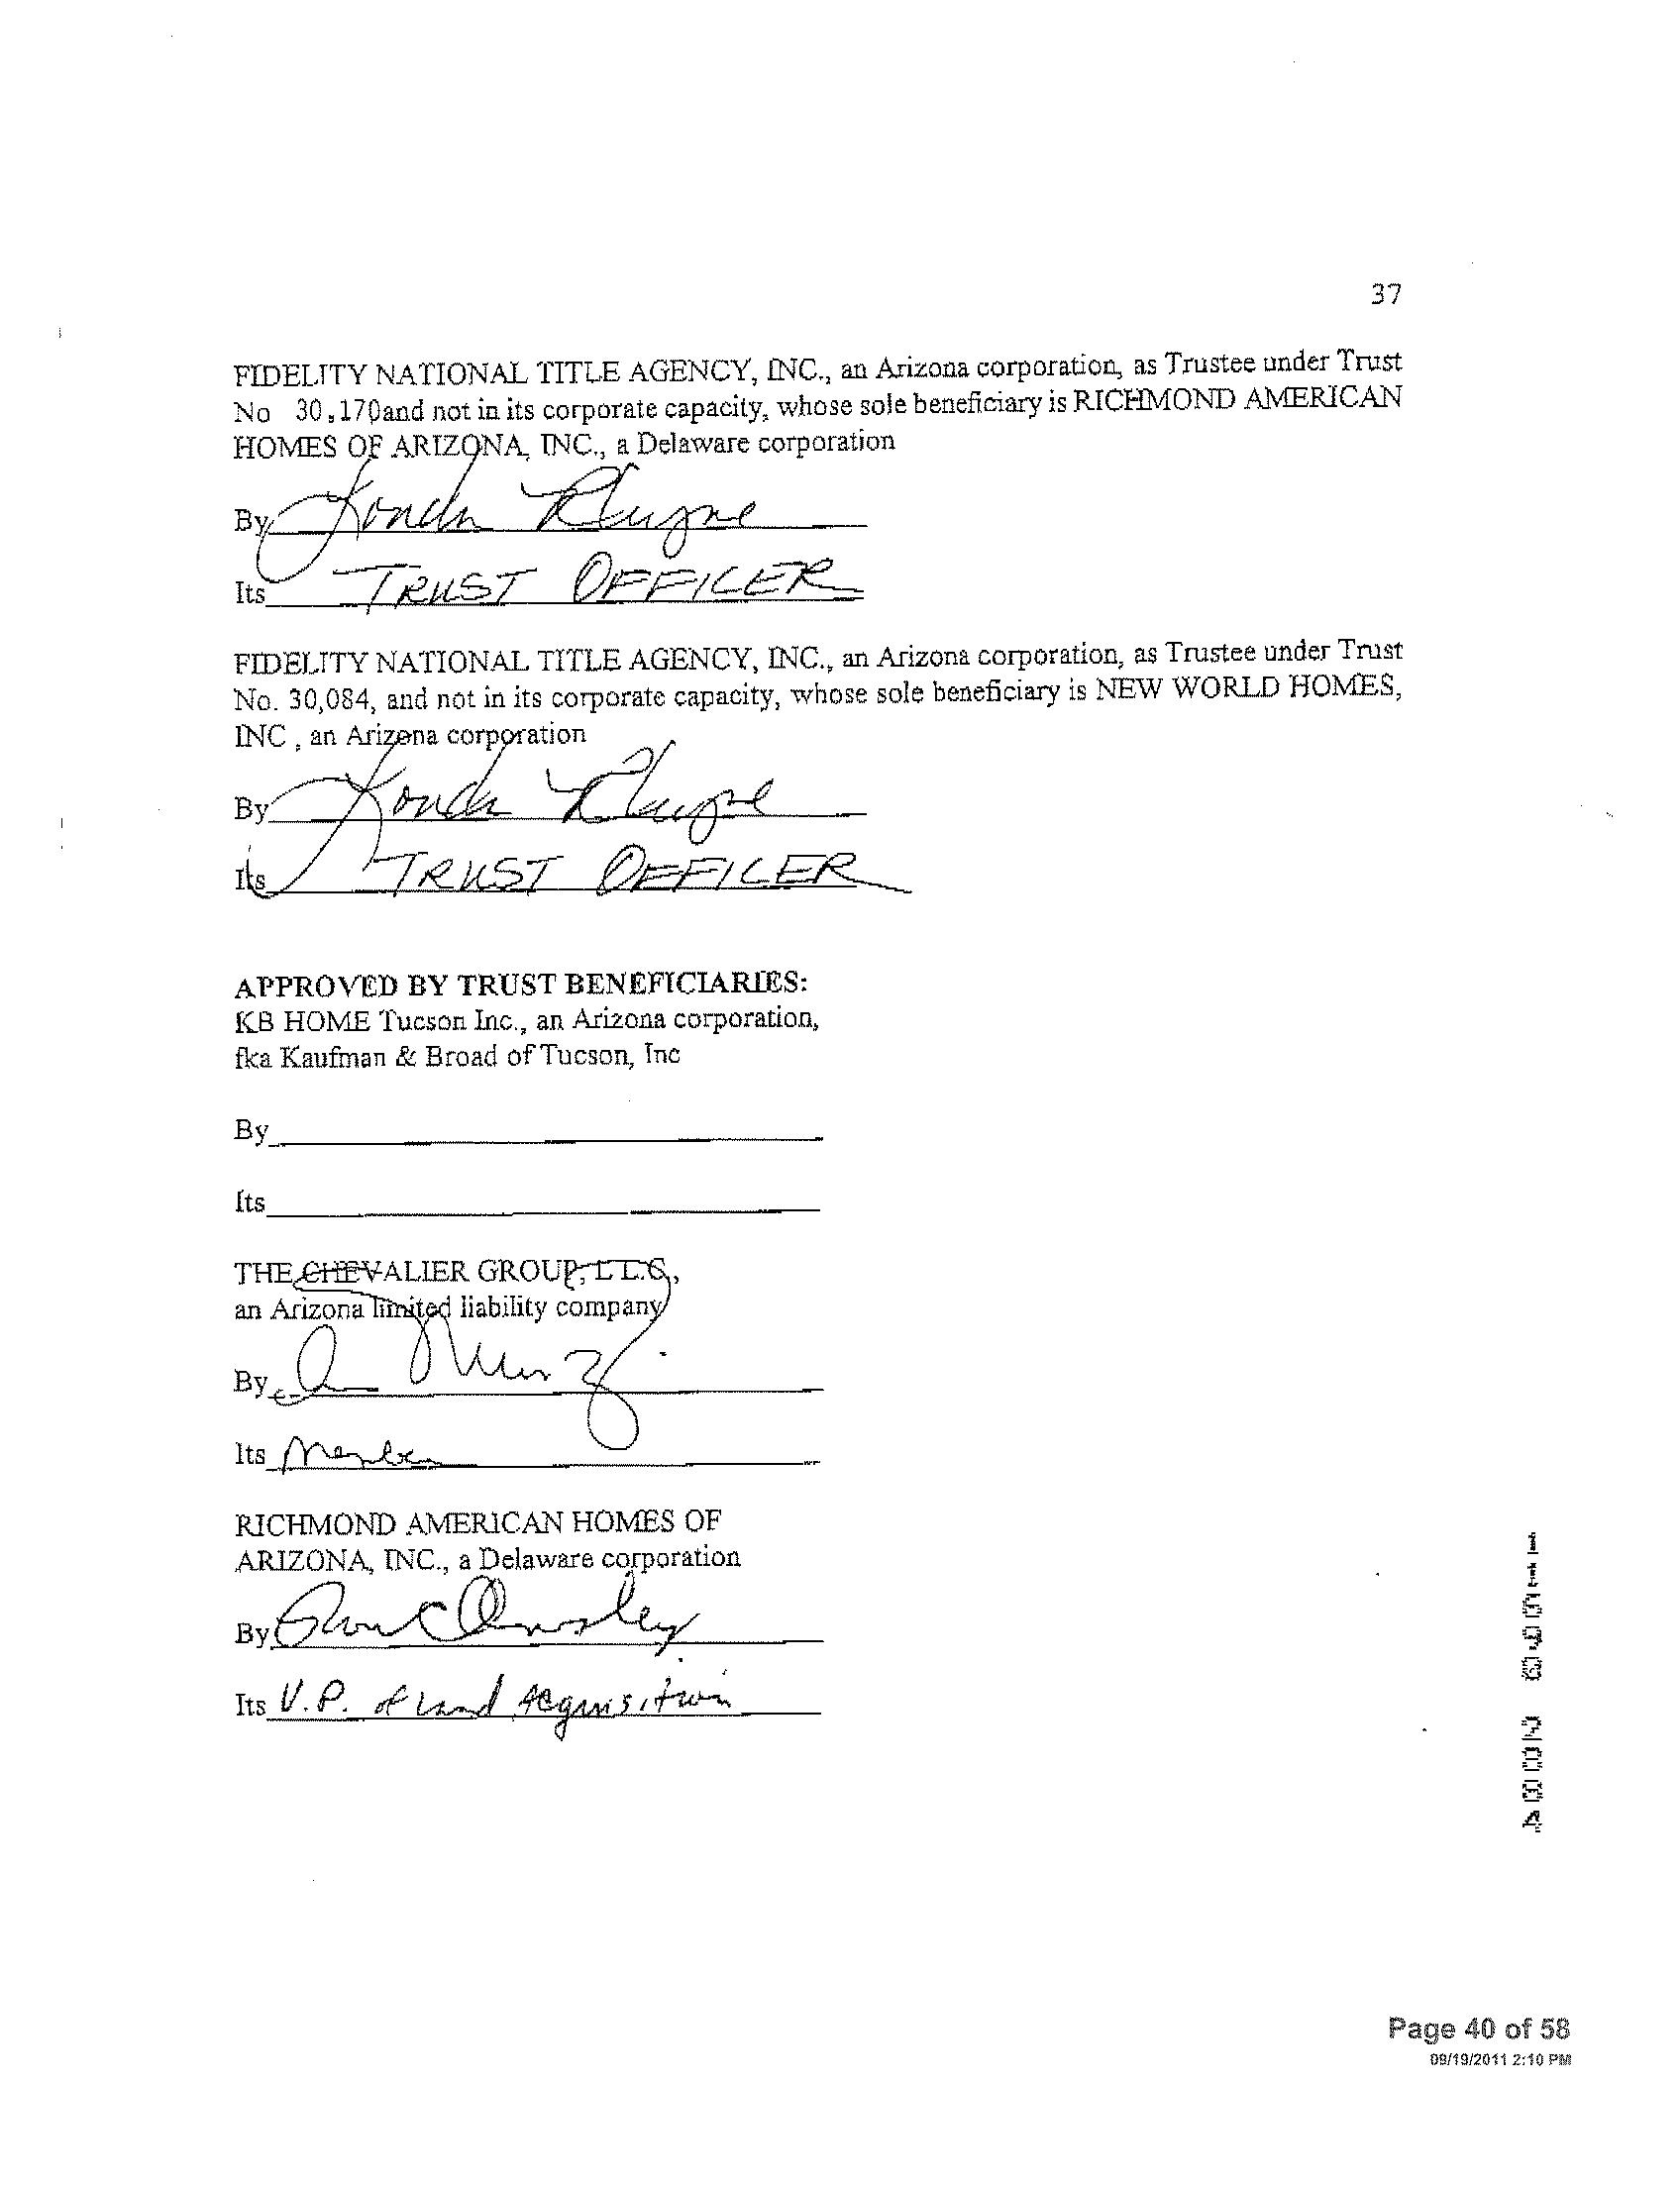 37
FIDELITY NATIONAL TITLE AGENCY, INC., an Arizona corporation, as Trustee under Trust
No 30,170and not in its corporate capacity, whose sole beneficiary is RICHMOND AMERICAN
HOMES OF ARIZONA, INC., a Delaware corporation
By
Its TRUST OFFICER
FIDELITY NATIONAL TITLE AGENCY, INC., an Arizona corporation, as Trustee under Trust
No. 30,084, and not in its corporate capacity, whose sole beneficiary is NEW WORLD HOMES,
INC , an Arizona corporation
By
Its TRUST OFFICER
APPROVED BY TRUST BENEFICIARIES:
KB HOME Tucson Inc., an Arizona corporation,
fka Kaufman & Broad of Tucson, Inc
By
Its
THE CHEVALIER GROUP, L.L.C.,
an Arizona limited liability company
By
Its Member
RICHMOND AMERICAN HOMES OF
ARIZONA, INC., a Delaware corporation
By
Its V.P. of Land Acquisition
Page 40 of 58
09/19/2011 2:10 PM